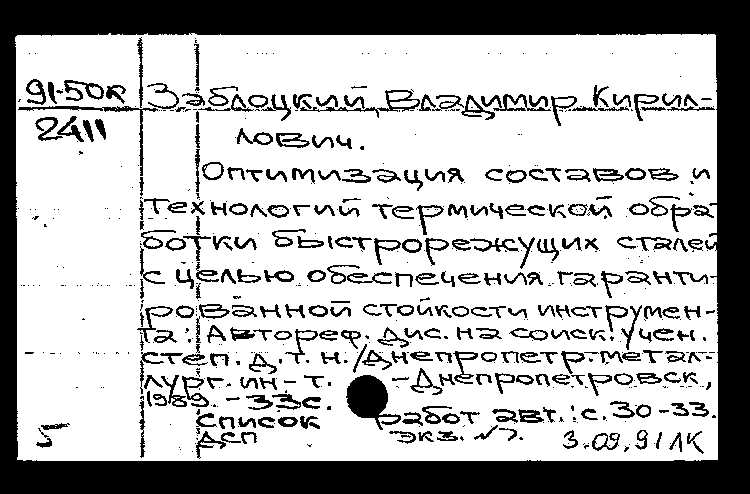 91-50к Заблоцкий, Владимир Кирил-
2411 лович.
Оптимизация составов и
технологий термической обра-
ботки быстрорежущих сталей
с целью обеспечения гаранти-
рованной стойкости инструмен-
та: Автореф. дис. на соиск. учен.
степ. д.т.н./Днепропетр.метал-
лург. ин-т. -Днепропетровск,
1989. - 33с.
Список работ авт.: с. 30-33.
ДСП экз. №7. 3.09.91 ЛК
5